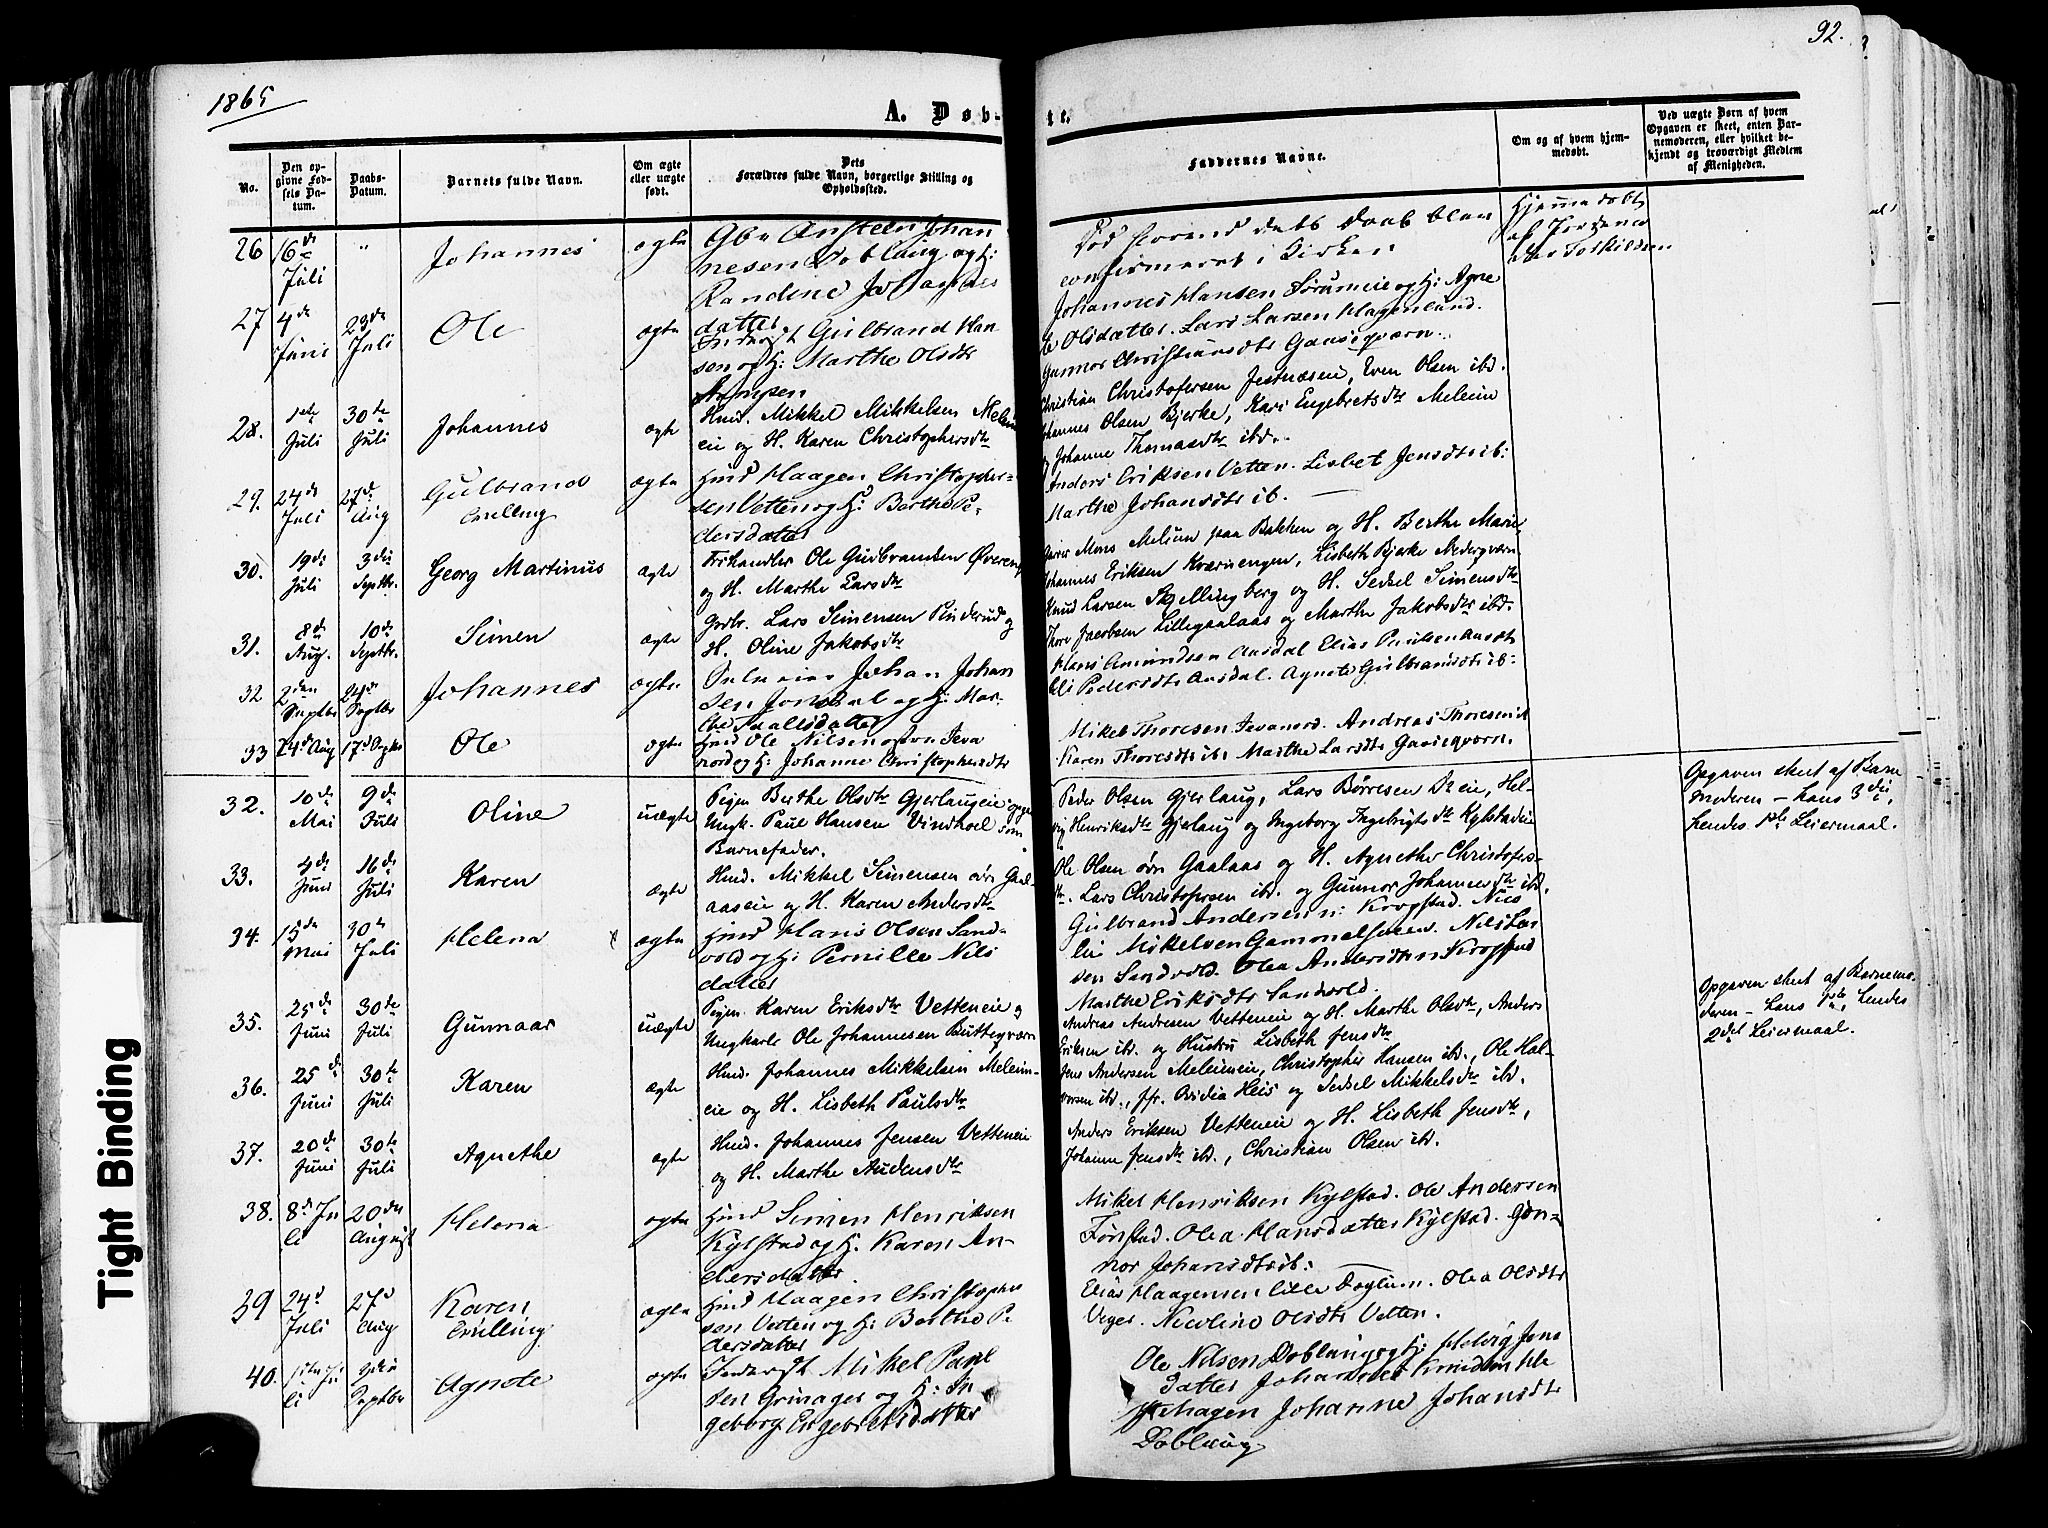 1865
92.
A. Døb-
te.
No.
Den op-
givne Fød-
sels Da-
tum.
Daabs-
Datum.
Barnets fulde Navn.
Om ægte
eller uægte
født.
Dets
Forældres fulde Navn, borgerlige Stilling og
Opholdssted.
Faddernes Navne.
Om og af hvem hjem-
medøbt.
Ved uægte Børn af hvem
Opgaven er skeet, enten Bar-
nemoderen, eller hvilket be-
kjendt og troværdigt Medlem
af Menigheden.
26
16de
Juli
"
Johannes
ægte
Gbr Ansten Johan
nesen Doblaug og H:
Randine Johannes
datter
Død forend dets Daab blev
confirmeret i Kirken
Hjemmedøbt
af
27
4de
Juni
23de
Juli
Ole
ægte
Inderst Gulbrand Han
sen og H: Marthe Olsdtr
Johannes Hansen og H: Agne
te Olsdatter. Lars Larsen Hagenlund.
Gunnor Christiansdtr Gaaseqværn.
28.
1ste
Juli
30te
Juli
Johannes
ægte
Husd. Mikkel Mikkelsen Melum
eie og H. Karen Christophersdtr
Christian Christofersen Jestnæseie, Even Olsen ibd.
Johannes Olsen Bjerke, Kari Engebretsdtr Meleim
og Johanne Thomasdtr ibd.
29.
24de
Juli
27de
Aug
Gulbrand
Tvilling
ægte
Husd Haagen Christopher-
sen Vetten og H: Berthe Pe-
dersdatter
Anders Eriksen Vetten. Lisbet Jensdtr ib:
Marthe Johansdtr ib.
30.
19de
Juli
3die
Septbr.
Georg Martinus
ægte
Ole Gulbrandsen Øveren
og H. Marthe Larsdtr
Mons Melum paa Bakken og H. Berthe Marie,
Johannes Eriksen Kværnengen, Lisbeth Bjerke Nederqværn
31.
8de
Aug.
10de
Septbr.
Simen
ægte
Gbr. Lars Simensen Pinderud og
H. Oline Jakobsdtr
Knud Larsen Skjellingberg og H. Sedsel Simensdtr
Thore Jacobsen Lillegaalaas og Marthe Jakobsdtr ibd.
32
2den
Septbr
24de
Septbr
Johannes
ægte
Johan Johan
sen og H: Mar-
the Paalsdatter
Hans Amundsen Aasdal Elias Paulsen
Pedersdtr Aasdal. Agnete Gulbransdtr ib:
33
24d Aug
17d Septbr
Ole
ægte
Husd Ole Nilsen Jeva
nord og H: Johanne Christophersdtr
Mikel Thoresen Jevanord. Andreas Thoresen ib
Karen Thoresdtr ib. Marthe Larsdtr Gaaseqværn.
32.
10de
Mai
9de
Juli
Oline
uægte
Pigen Berthe Olsdtr Gjerlaugeie og
Ungk. Paul Hansen Vindhoel som
Barnefader.
Peder Olsen Gjerlaug, Lars Børresen Reie, Hel-
vig Henriksdtr Gjerlaug og Ingeborg Ingebrigtsdtr Kylstadeie
Opgaven skeet af Barne
moderen – hans 3die,
hendes 1ste Leiermaal.
33.
4de
Juni
16de
Juli
Karen
ægte
Husd. Mikkel Simensen øvr Gaal-
aaseie og H. Karen Andersdtr
Ole Olsen øvr Gaalaas og H. Agnethe Christofers-
dtr. Lars Christofersen ibd. og Gunnor Johannesdtr ibd.
34.
15de
Mai
30te
Juli
Helena
ægte
Husd Hans Olsen Sand-
vold og H: Pernille Nils
datter
Gulbrand Andersen n: Krogstad. Nico
lai Mikelsen Nils Lar
sen Sandvold. Olea Andersdtr n Krogstad
Marthe Eriksdtr Sandvold.
35.
25de
Juni
30te
Juli
Gunnaar
uægte
Pigen Karen Eriksdtr Vetteneie og
Ungkarl Ole Johannesen Butteqværn
Andreas Andresen Vetteneie og H. Marthe Olsdtr, Anders
Eriksen ibd. og Hustru Lisbeth Jensdtr
Opgaven skeet af Barnemo-
deren – hans 1ste, hendes
2det Leiermaal.
36.
25de
Juni
30te
Juli
Karen
ægte
Husd. Johannes Mikkelsen Meleim-
eie og H. Lisbeth Paulsdtr
Jens Andersen Meleimeie, Christopher Hansen ibd., Ole Hal-
vorsen ibd., jfr. Heis og Sedsel Mikkelsdtr ibd.
37.
20de
Juni
30te
Juli
Agnethe
ægte
Husd. Johannes Jensen Vetteneie
og H. Marthe Audensdtr
Anders Eriksen Vetteneie og H. Lisbeth Jensdtr,
Johanne Jensdtr ibd., Christian Olsen ibd.
38.
8de Ju
li
20de
August
Helena
ægte
Husd Simen Henriksen
Kylstad og H. Karen An-
dersdatter
Mikel Henriksen Kylstad. Ole Andersen
Fønstad. Olea Hansdatter Kylstad. Gun-
nor Johansdtr ib:
39
24d
Juli
27d
Aug
Karen
Tvilling
ægte
Husd Haagen Christopher
sen Vetten og H: Berthe Pe
dersdatter
Elias Haagensen lille Doglum. Olea Olsdtr
Veger. Nicoline Olsdtr Vetten.
40.
li
Septbr
Agnete
ægte
Inderst Mikel Paul
sen Grinager og H: In
geborg Engebretsdatter
Ole Nilsen Doblaug og H: Helvig Jens
datter Johannes Knudsen
hagen Johanne Johansdtr
Doblaug
Tight Binding